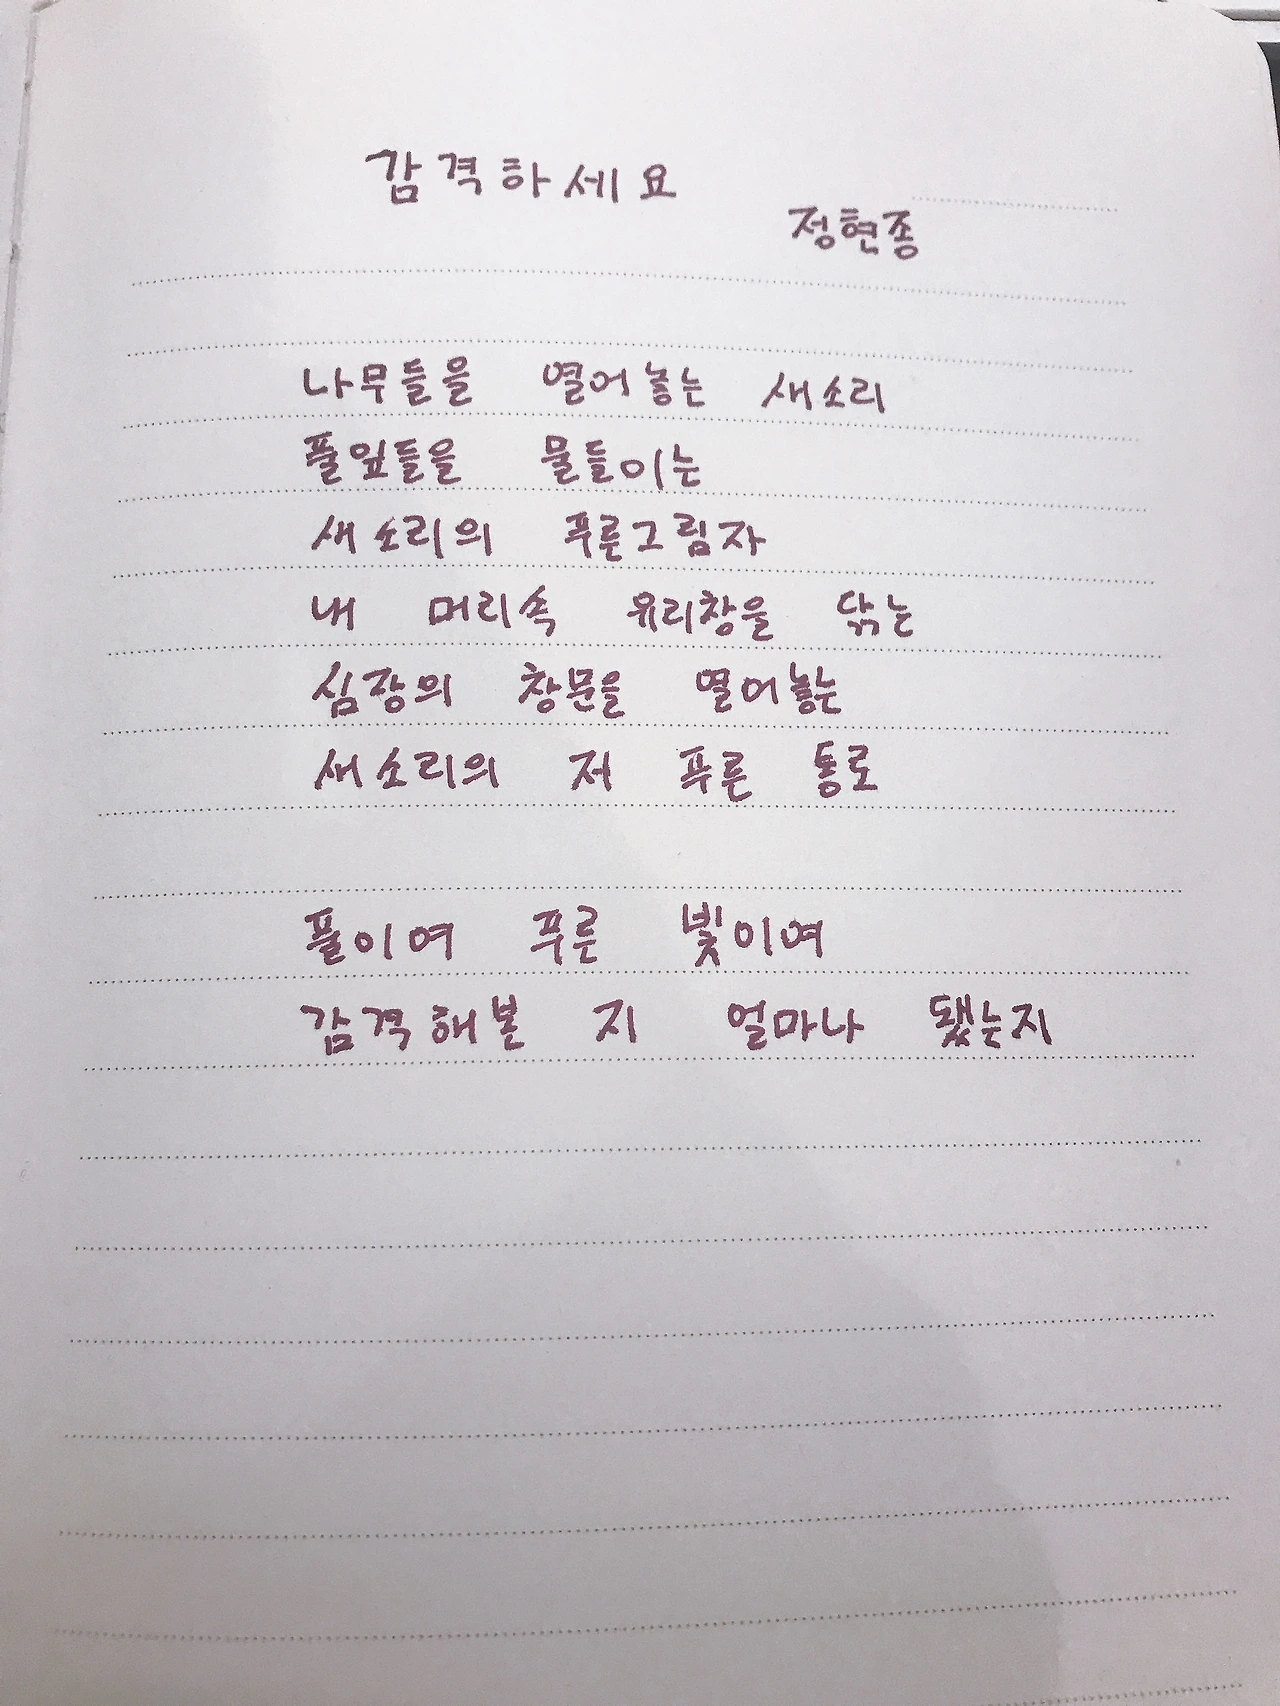 감격하세요
정현종
나무들을 열어놓는 새소리
풀잎들을 물들이는
새소리의 푸른그림자
내 머리속 유리창을 닦는
심장의 창문을 열어놓는
새소리의 저 푸른 통로
풀이여 푸른 빛이여
감격해본 지 얼마나 됐는지